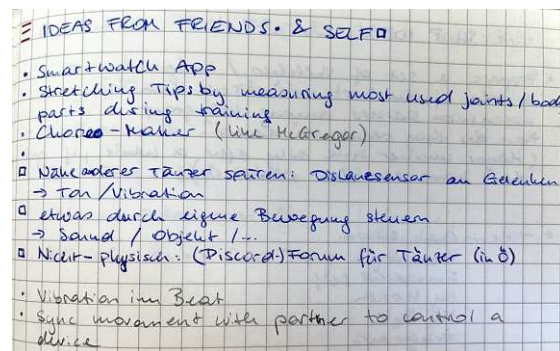 IDEAS FROM FRIENDS. & SELF
• Smartwatch App
• Stretching Tips by measuring most used joints / bod
parts during training
• Choreo-Maker (like McGregor)
•
□ Nähe anderer Tänzer spüren: Distanzsensor an Gelenken
→ Ton / Vibration
□ etwas durch eigene Bewegung steuern
→ Sound / Objekt / ...
□ Nicht-physisch: (Discord-) Forum für Tänzer (in Ö)
• Vibration im Beat
• Sync movement with partner to control a
device